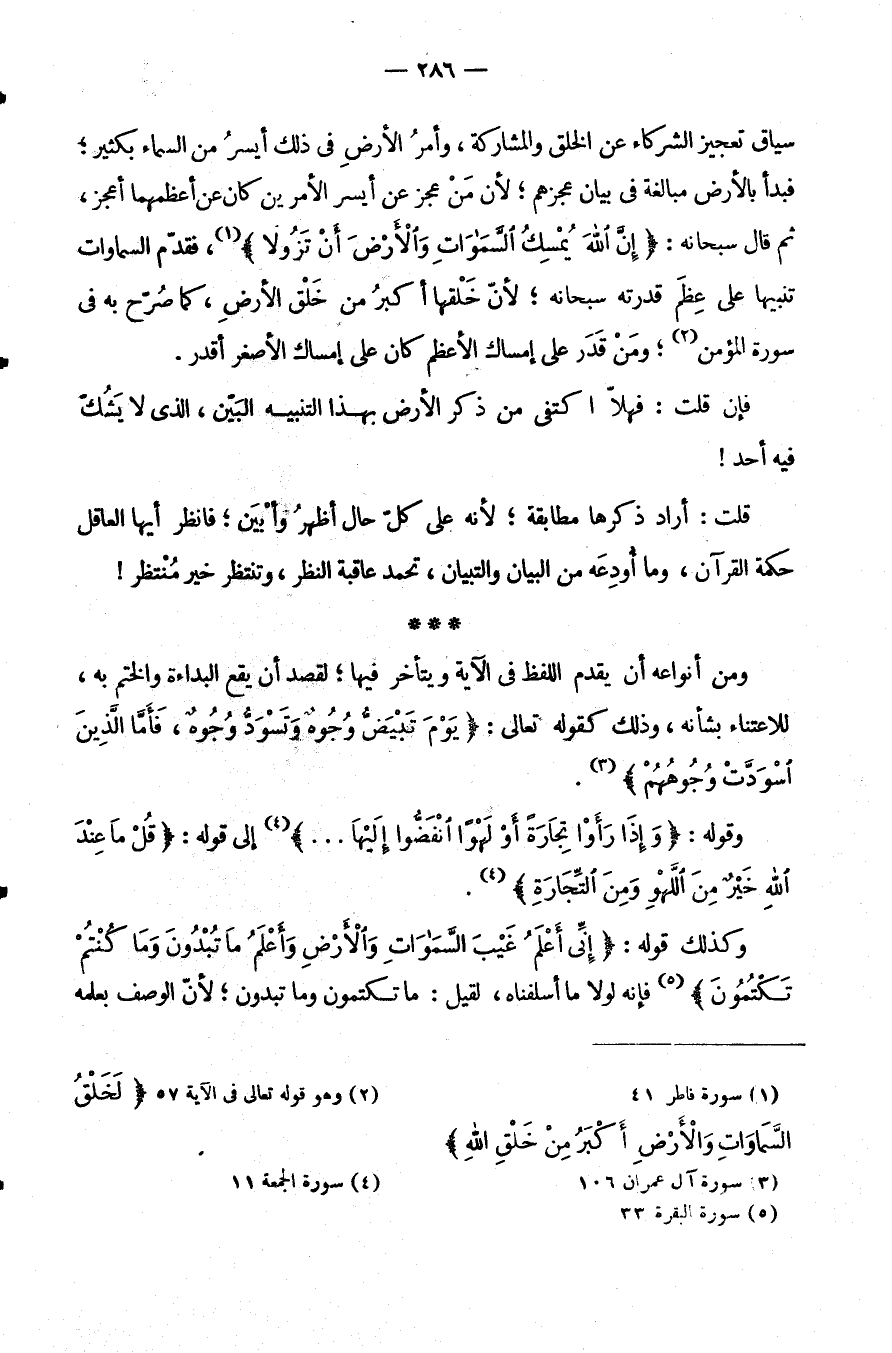 — ٢٨٦ —
سياق تعجيز الشركاء عن الخلق والمشاركة ، وأمرُ الأرضِ فى ذلك أيسرُ من السماء بكثير ؛
فبدأ بالأرض مبالغة فى بيان عجزهم ؛ لأن مَنْ عجز عن أيسر الأمرين كان عن أعظمهما أعجز ،
ثم قال سبحانه : ﴿ إِنَّ ٱللهَ يُمْسِكُ ٱلسَّمَوَاتِ وَٱلْأَرْضَ أَنْ تَزُولَا ﴾(١)، فقدّم السماوات
تنبيها على عِظَم قدرته سبحانه ؛ لأنّ خَلْقها أكبرُ من خَلْق الأرضِ ، كما صُرّح به فى
سورة المؤمن(٢) ؛ ومَنْ قَدَر على إمساك الأعظم كان على إمساك الأصغر أقدر .
فإن قلت : فهلاّ اكتفى من ذكر الأرض بهذا التنبيه البَيّن ، الذى لا يَشُكّ
فيه أحد !
قلت : أراد ذكرها مطابقة ؛ لأنه على كلّ حال أظهرُ وأبْيَن ؛ فانظر أيها العاقل
حكمة القرآن ، وما أُودِعَه من البيان والتبيان ، تحمد عاقبة النظر ، وتنتظر خير مُنْتظر !
***
ومن أنواعه أن يقدم اللفظ فى الآية ويتأخر فيها ؛ لقصد أن يقع البداءة والختم به ،
للاعتناء بشأنه ، وذلك كقوله تعالى : ﴿ يَوْمَ تَبْيَضُّ وُجُوهٌ وَتَسْوَدُّ وُجُوهٌ ، فَأَمَّا الَّذِينَ
ٱسْوَدَّتْ وُجُوهُهُمْ ﴾ (٣) .
وقوله : ﴿ وَإِذَا رَأَوْا تِجَارَةً أَوْ لَهْوًا ٱنْفَضُّوا إِلَيْهَا ... ﴾(٤) إلى قوله : ﴿ قُلْ مَا عِنْدَ
ٱللهِ خَيْرٌ مِنَ ٱللَّهْوِ وَمِنَ ٱلتِّجَارَةِ ﴾ (٤) .
وكذلك قوله : ﴿ إِنِّى أَعْلَمُ غَيْبَ السَّمَوَاتِ وَٱلْأَرْضِ وَأَعْلَمُ مَا تُبْدُونَ وَمَا كُنْتُمْ
تَكْتُمُونَ ﴾ (٥) فإنه لولا ما أسلفناه ، لقيل : ما تكتمون وما تبدون ؛ لأنّ الوصف بعلمه
(١) سورة فاطر ٤١ (٢) وهو قوله تعالى فى الآية ٥٧ ﴿ لَخَلْقُ
السَّمَاوَاتِ وَالْأَرْضِ أَكْبَرُ مِنْ خَلْقِ اللهِ ﴾
(٣) سورة آل عمران ١٠٦ (٤) سورة الجمعة ١١
(٥) سورة البقرة ٣٣